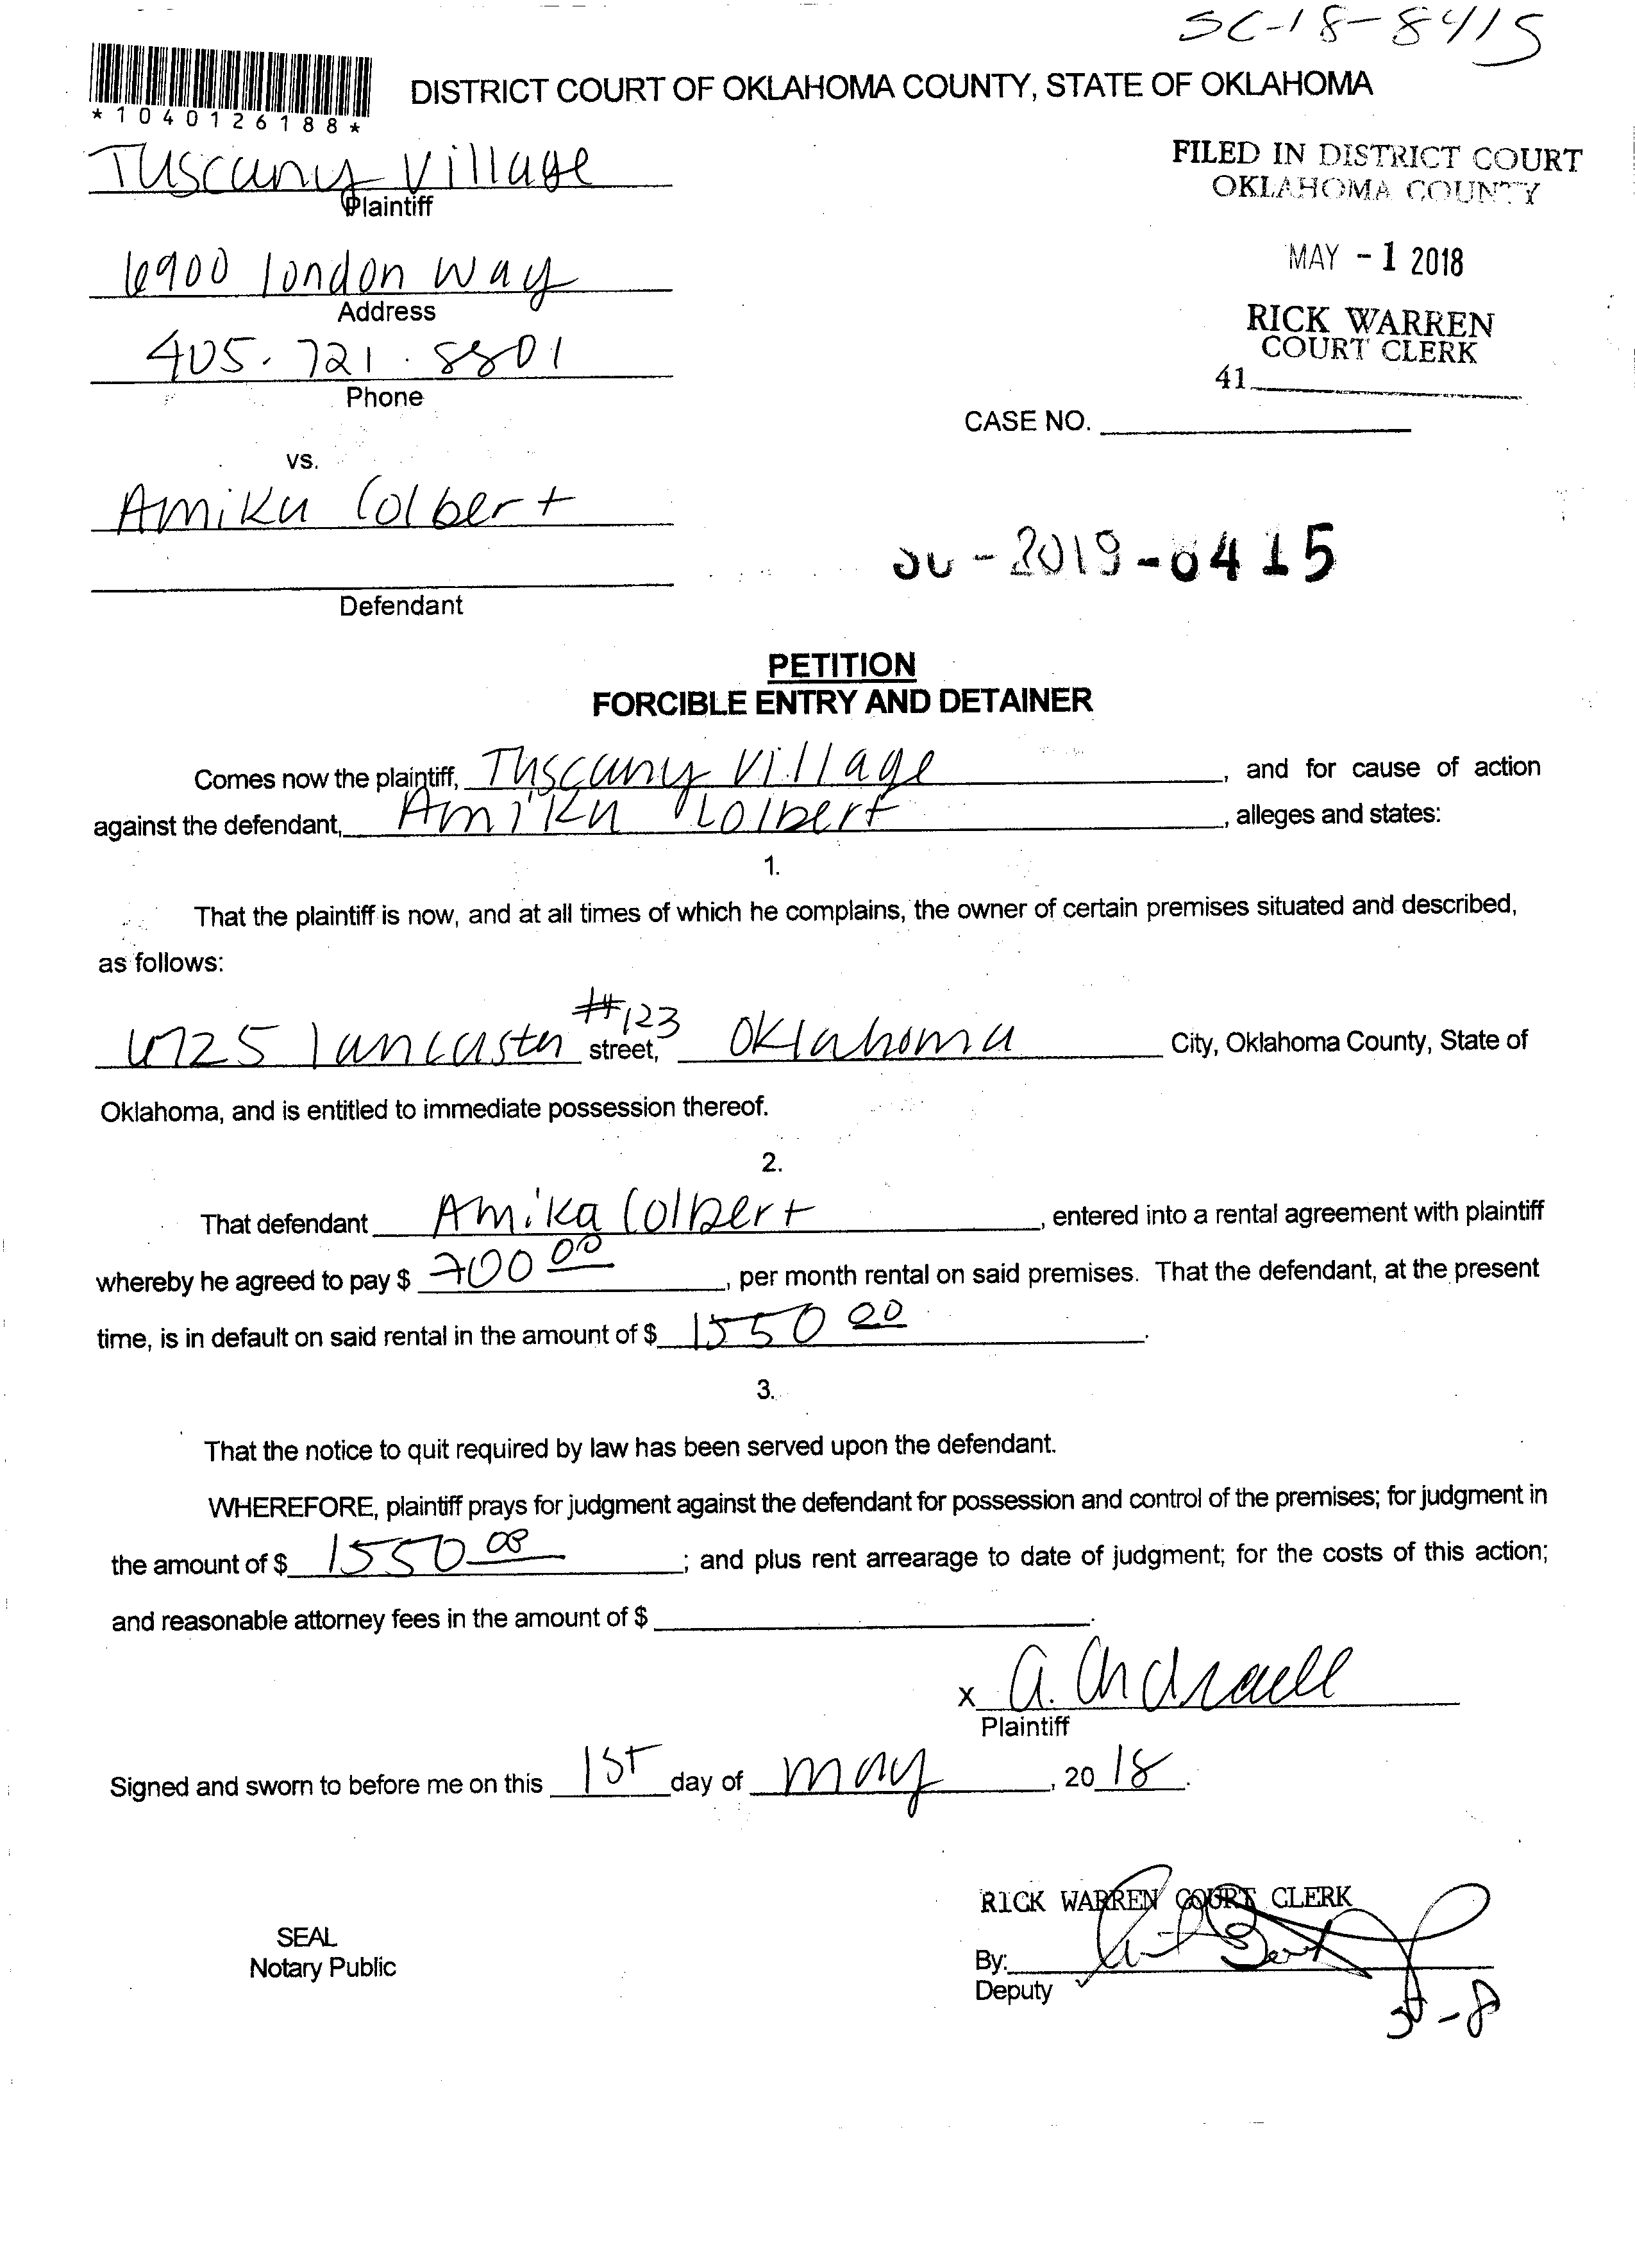 SC-18-8415
*1040126188*
DISTRICT COURT OF OKLAHOMA COUNTY, STATE OF OKLAHOMA
Tuscany Village
Plaintiff
FILED IN DISTRICT COURT
OKLAHOMA COUNTY
6900 london way
Address
MAY - 1 2018
405. 721. 8801
Phone
RICK WARREN
COURT CLERK
41
CASE NO.
vs.
Amika Colbert
Defendant
PETITION
FORCIBLE ENTRY AND DETAINER
Comes now the plaintiff, Tuscany Village, and for cause of action
against the defendant, Amika Colbert, alleges and states:
1.
That the plaintiff is now, and at all times of which he complains, the owner of certain premises situated and described,
as follows:
6725 lancaster #123 street, Oklahoma City, Oklahoma County, State of
Oklahoma, and is entitled to immediate possession thereof.
2.
That defendant Amika Colbert, entered into a rental agreement with plaintiff
whereby he agreed to pay $ 700 00, per month rental on said premises. That the defendant, at the present
time, is in default on said rental in the amount of $ 1550 00.
3.
That the notice to quit required by law has been served upon the defendant.
WHEREFORE, plaintiff prays for judgment against the defendant for possession and control of the premises; for judgment in
the amount of $ 1550 00; and plus rent arrearage to date of judgment; for the costs of this action;
and reasonable attorney fees in the amount of $ .
x A.
Plaintiff
Signed and sworn to before me on this 1st day of may, 20 18.
RICK WARREN COURT CLERK
SEAL
Notary Public
By:
Deputy